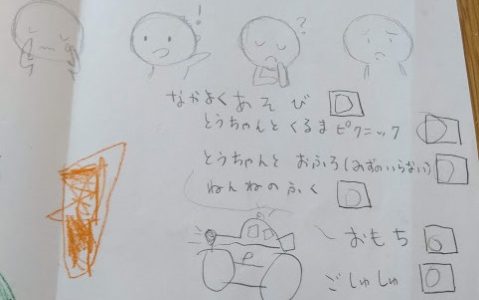 !
?
なかよくあそび
とうちゃんとくるまピクニック
とうちゃんと おふろ(みずのいらない)
ねんねのふく
おもち
ごしゅしゅ